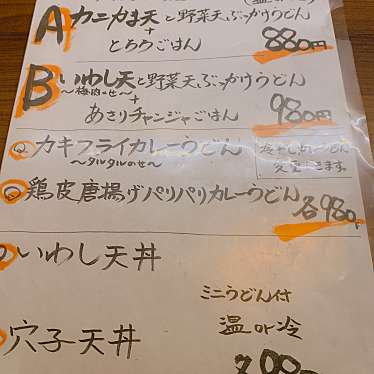 A カニカま天と野菜天ぶっかけうどん
+
とろろごはん 880円
B いわし天と野菜天ぶっかけうどん
〜梅肉のせ〜 +
あさりチャンジャごはん 980円
カキフライカレーうどん
〜タルタルのせ〜
鶏皮唐揚げパリパリカレーうどん 各980円
いわし天丼
ミニうどん付
穴子天丼 温or冷